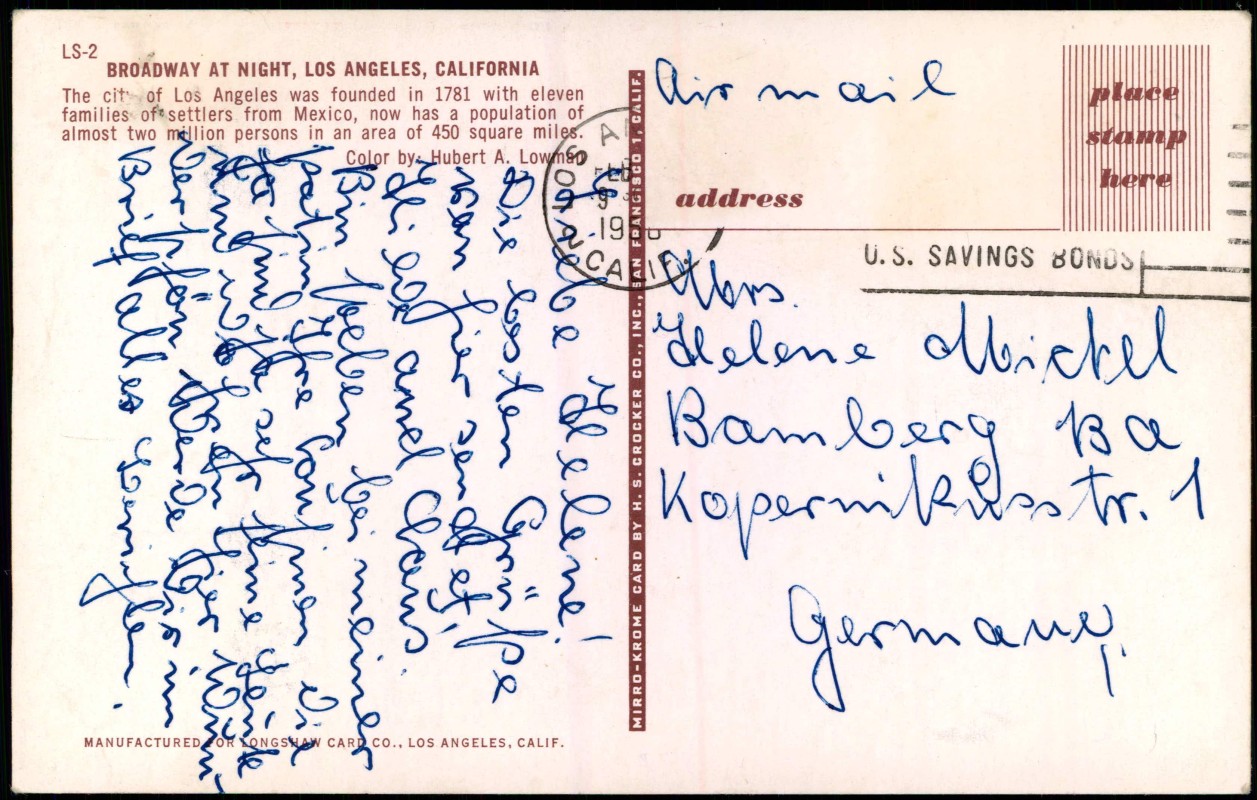 LS-2
BROADWAY AT NIGHT, LOS ANGELES, CALIFORNIA
The city of Los Angeles was founded in 1781 with eleven
families of settlers from Mexico, now has a population of
almost two million persons in an area of 450 square miles.
Color by: Hubert A. Lowman
Liebe Helene!
Die besten Grüße
von hier sendet
Hilde and Claus
Bin soeben bei meiner
hier wun
der schön. Werde Dir im
Brief alles berichten.
MANUFACTURED FOR LONGSHAW CARD CO., LOS ANGELES, CALIF.
MIRRO-KROME CARD BY H. S. CROCKER CO., INC., SAN FRANCISCO 1, CALIF.
LOS
FEB
CALIF
U.S. SAVINGS BONDS
place
stamp
here
Air mail
address
Mrs.
Helene Mickel
Bamberg Ba
Kopernikusstr. 1
Germany